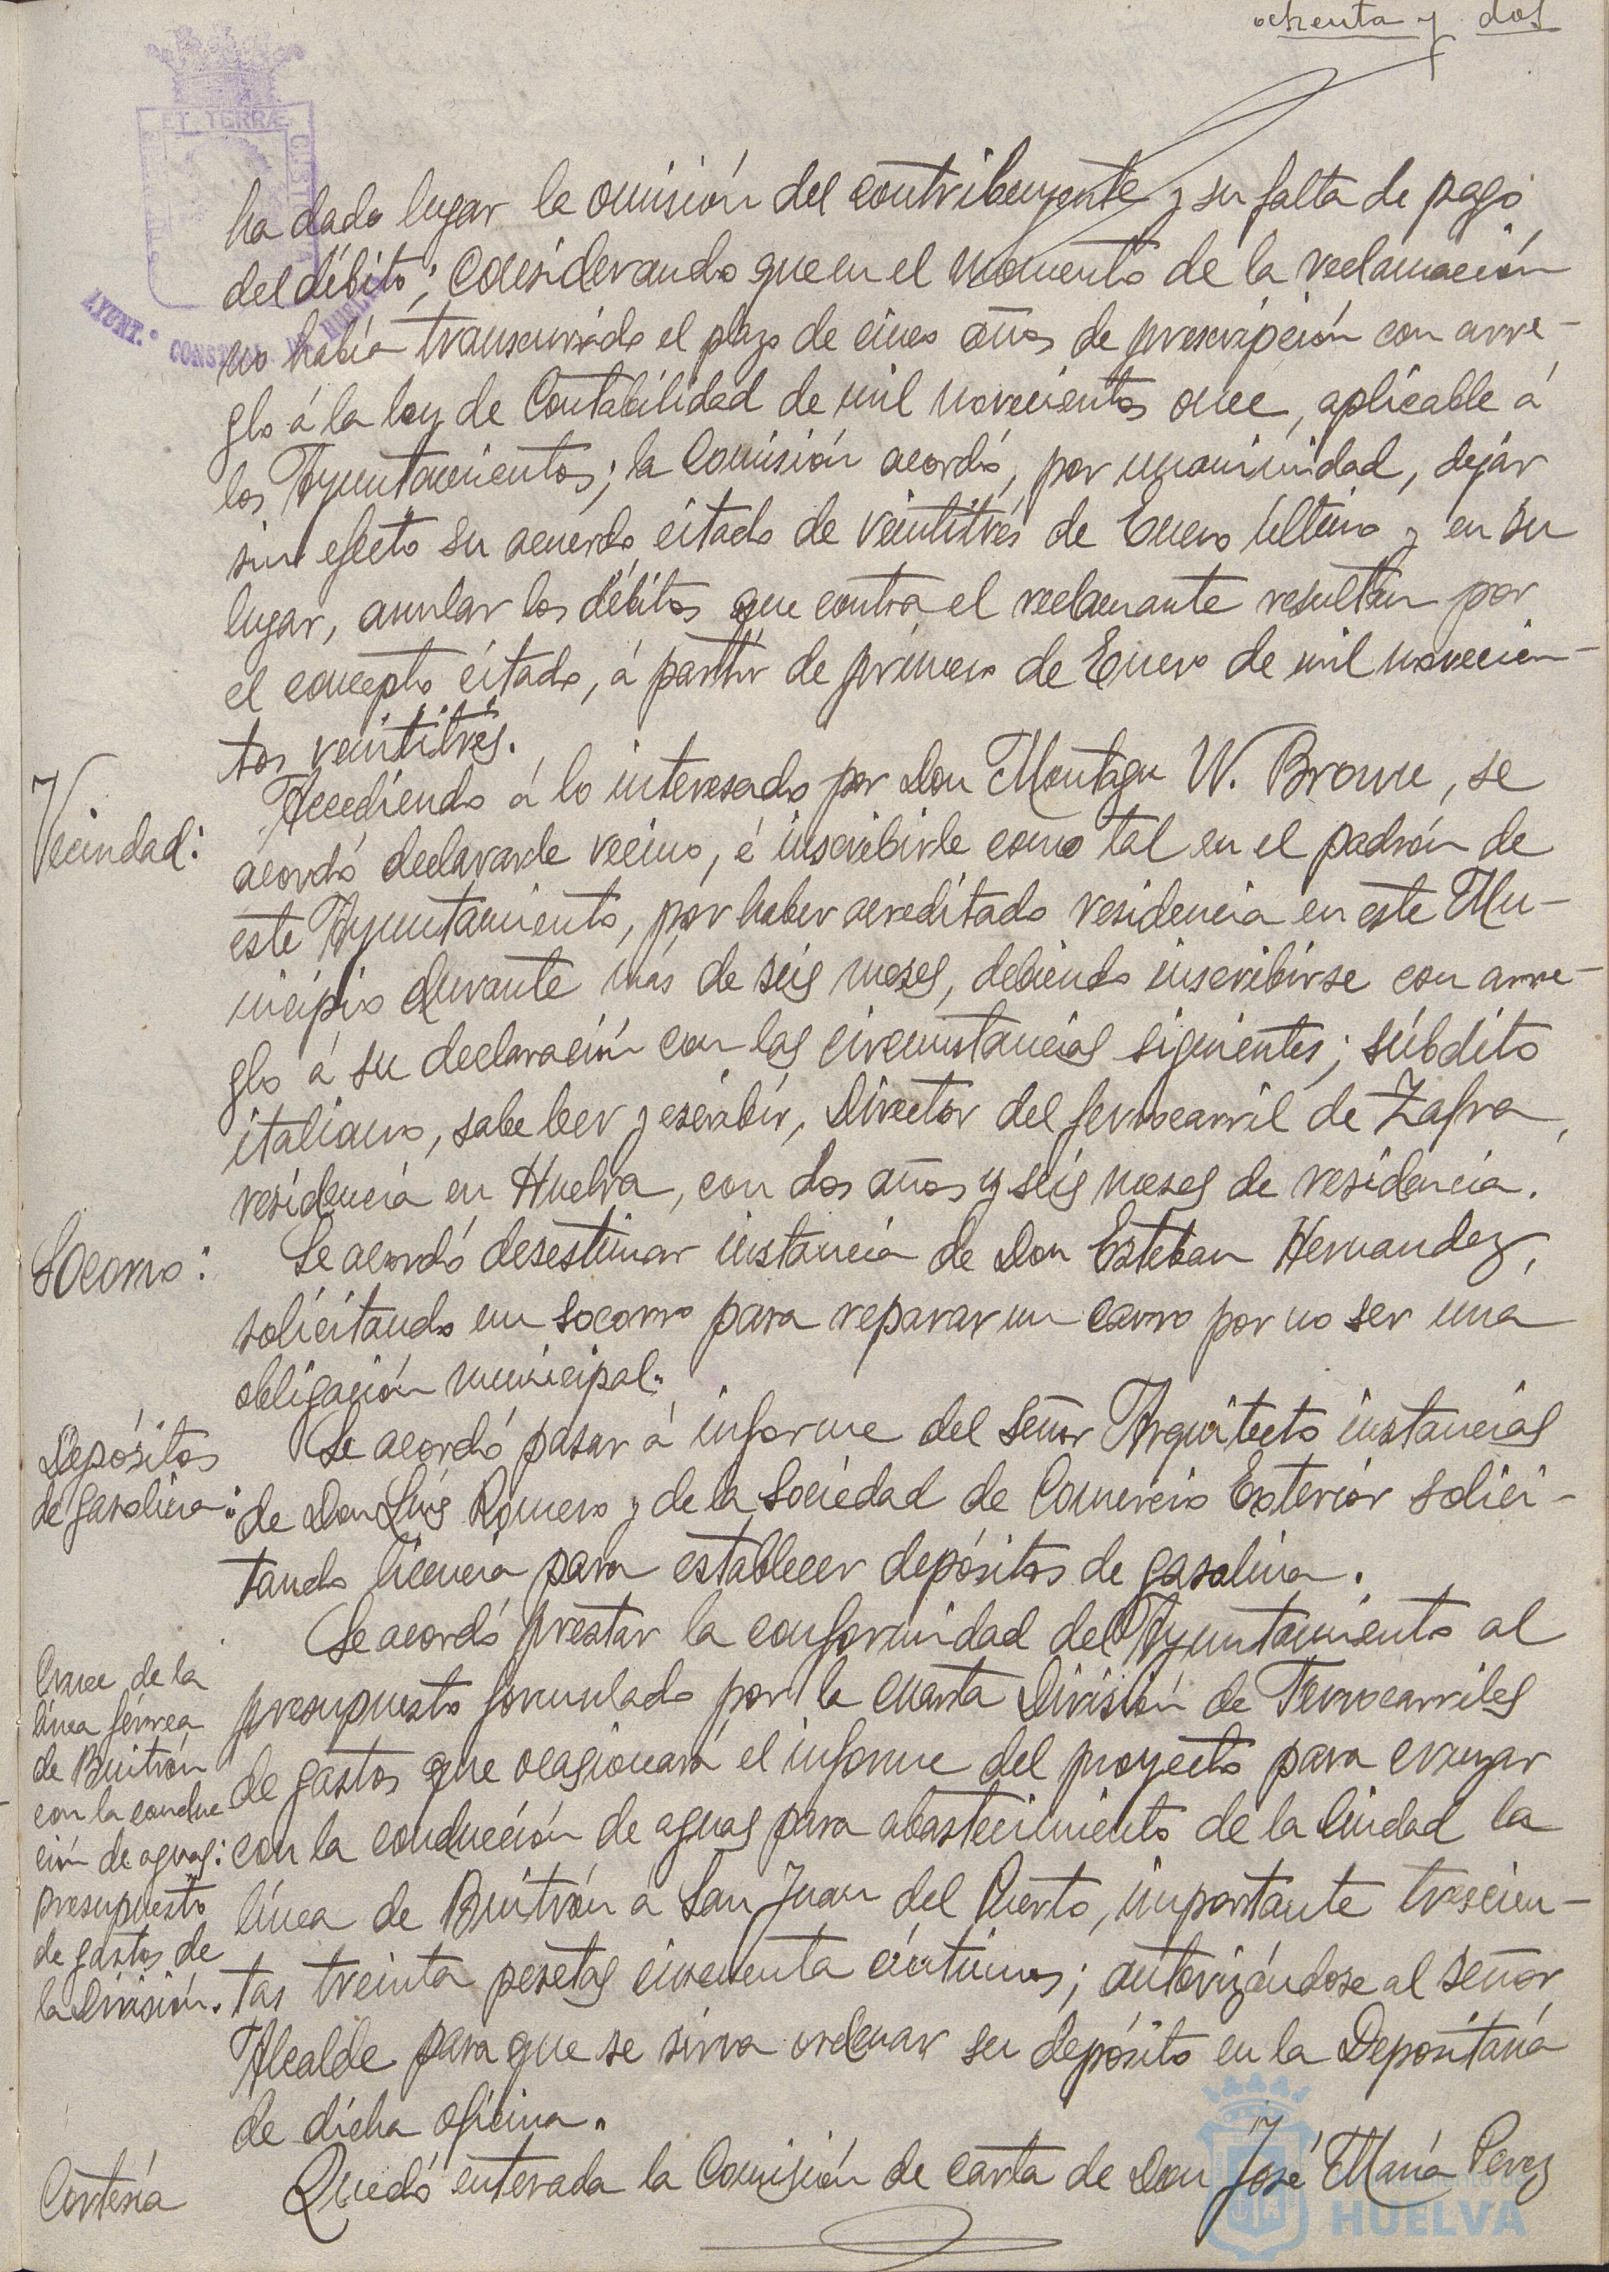 ochenta y dos
ET TERRÆ
AYUNT.º CONSTNAL DE HUELVA
ha dado lugar la omisión del contribuyente y su falta de pago
del débito; Considerando que en el momento de la reclamación
no había transcurrido el plazo de cinco años de prescripción con arre-
glo á la ley de Contabilidad de mil novecientos once, aplicable á
los Ayuntamientos; la Comisión acordó, por unanimidad, dejar
sin efecto su acuerdo citado de veintitrés de Enero último y en su
lugar, anular los débitos que contra el reclamante resultan por
el concepto citado, á partir de primero de Enero de mil novecien-
tos veintitrés.
Vecindad:
Accediendo á lo interesado por Don Montagu W. Brown, se
acordó declararle vecino, é inscribirle como tal en el padrón de
este Ayuntamiento, por haber acreditado residencia en este Mu-
nicipio durante más de seis meses, debiendo inscribirse con arre-
glo á su declaración con las circunstancias siguientes; súbdito
italiano, sabe leer y escribir, Director del ferrocarril de Zafra,
residencia en Huelva, con dos años y seis meses de residencia.
Socorro:
Se acordó desestimar instancia de Don Esteban Hernandez,
solicitando un socorro para reparar un carro por no ser una
obligación municipal.
Depósitos
de gasolina:
Se acordó pasar á informe del señor Arquitecto instancias
de Don Luis Romero y de la Sociedad de Comercio Exterior solici-
tando licencia para establecer depósitos de gasolina.
Cruce de la
línea férrea
de Buitrón
con la conduc
ción de aguas:
presupuesto
de gastos de
la División.
Se acordó prestar la conformidad del Ayuntamiento al
presupuesto formulado por la cuarta División de Ferrocarriles
de gastos que ocasionará el informe del proyecto para cruzar
con la conducción de aguas para abastecimiento de la Ciudad la
línea de Buitrón a San Juan del Puerto, importante trescien-
tas treinta pesetas cincuenta céntimos; autorizándose al señor
Alcalde para que se sirva ordenar su depósito en la Depositaría
de dicha oficina.
Cortesía
Quedó enterada la Comisión de carta de Don José María Perez
HUELVA